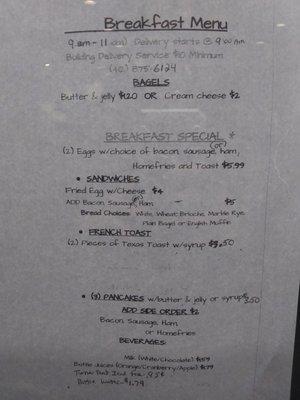 Breakfast Menu
9 am - 11 am) Delivery starts @ 9:00 Am
Building Delivery Service $10 Minimum
875-6124
BAGELS
Butter & jelly $1.20 OR Cream cheese $2
BREAKFAST SPECIAL *
(2) Eggs w/choice of bacon, sausage, (or) ham,
Homefries and Toast $5.99
• SANDWICHES
Fried Egg w/Cheese $4
ADD Bacon, Sausage, (or) Ham $5
Bread Choices: White, Wheat, Brioche, Marble Rye
Plain Bagel or English Muffin
• FRENCH TOAST
(2) Pieces of Texas Toast w/syrup $3.50
• (3) PANCAKES w/butter & jelly or syrup $2.50
ADD SIDE ORDER $2
Bacon, Sausage, Ham
or Homefries
BEVERAGES:
Milk (White/Chocolate) $1.59
Bottle Juices (Orange/Cranberry/Apple) $1.79
Iced Tea
Water $1.79